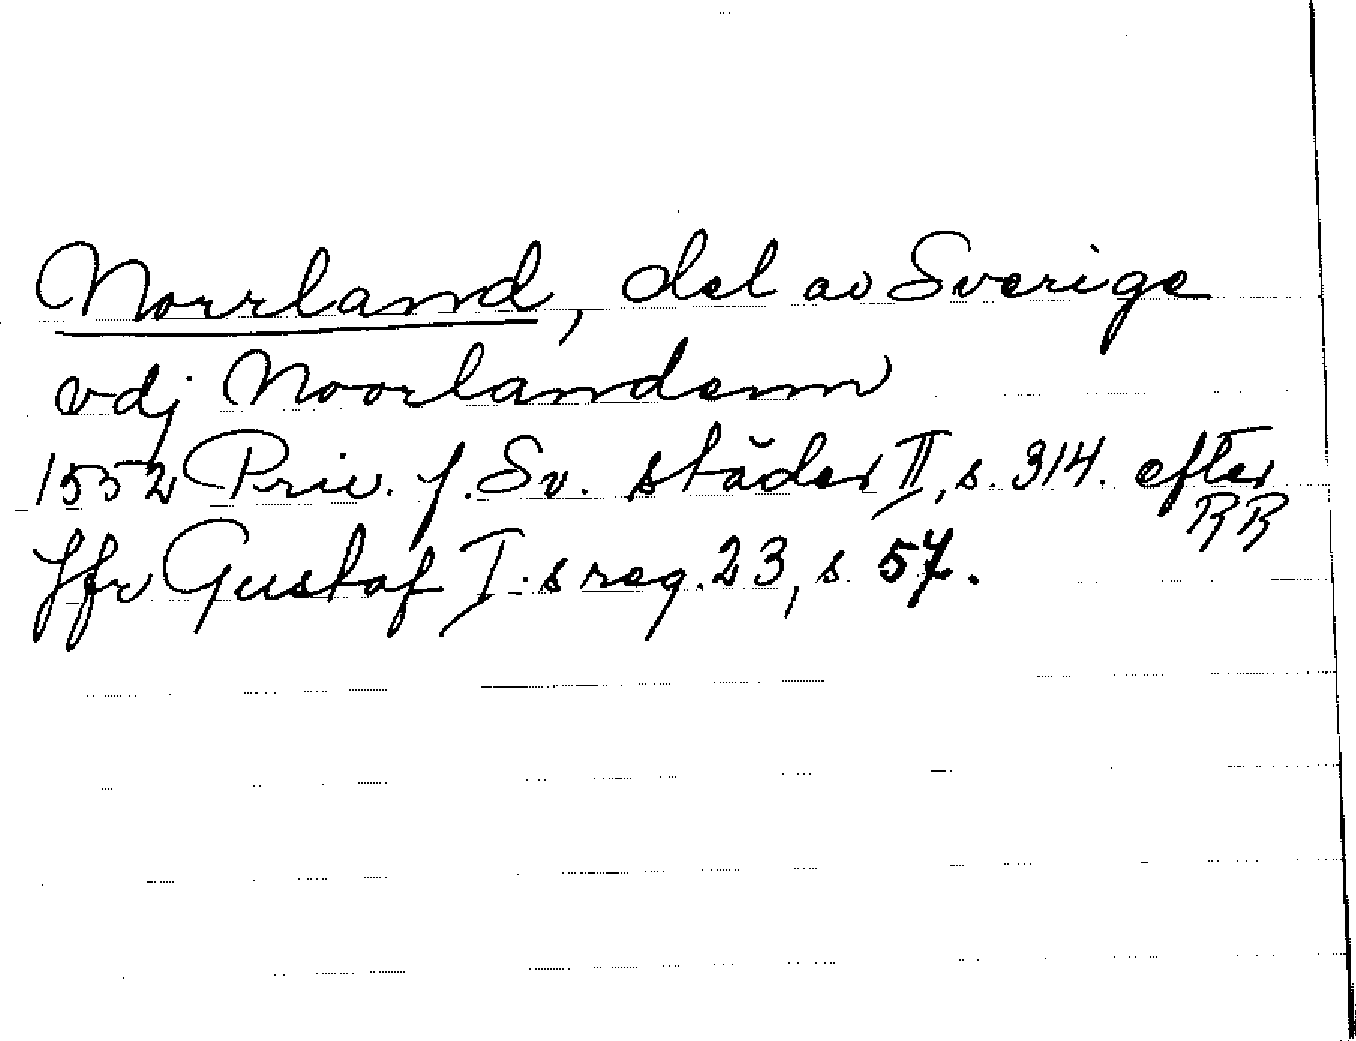 Norrland, del av Sverige
vdj Noorlandenn
1552 Priv. f. Sv. städer II, s. 314. efter
RR
Jfr Gustaf I:s reg. 23, s. 57.